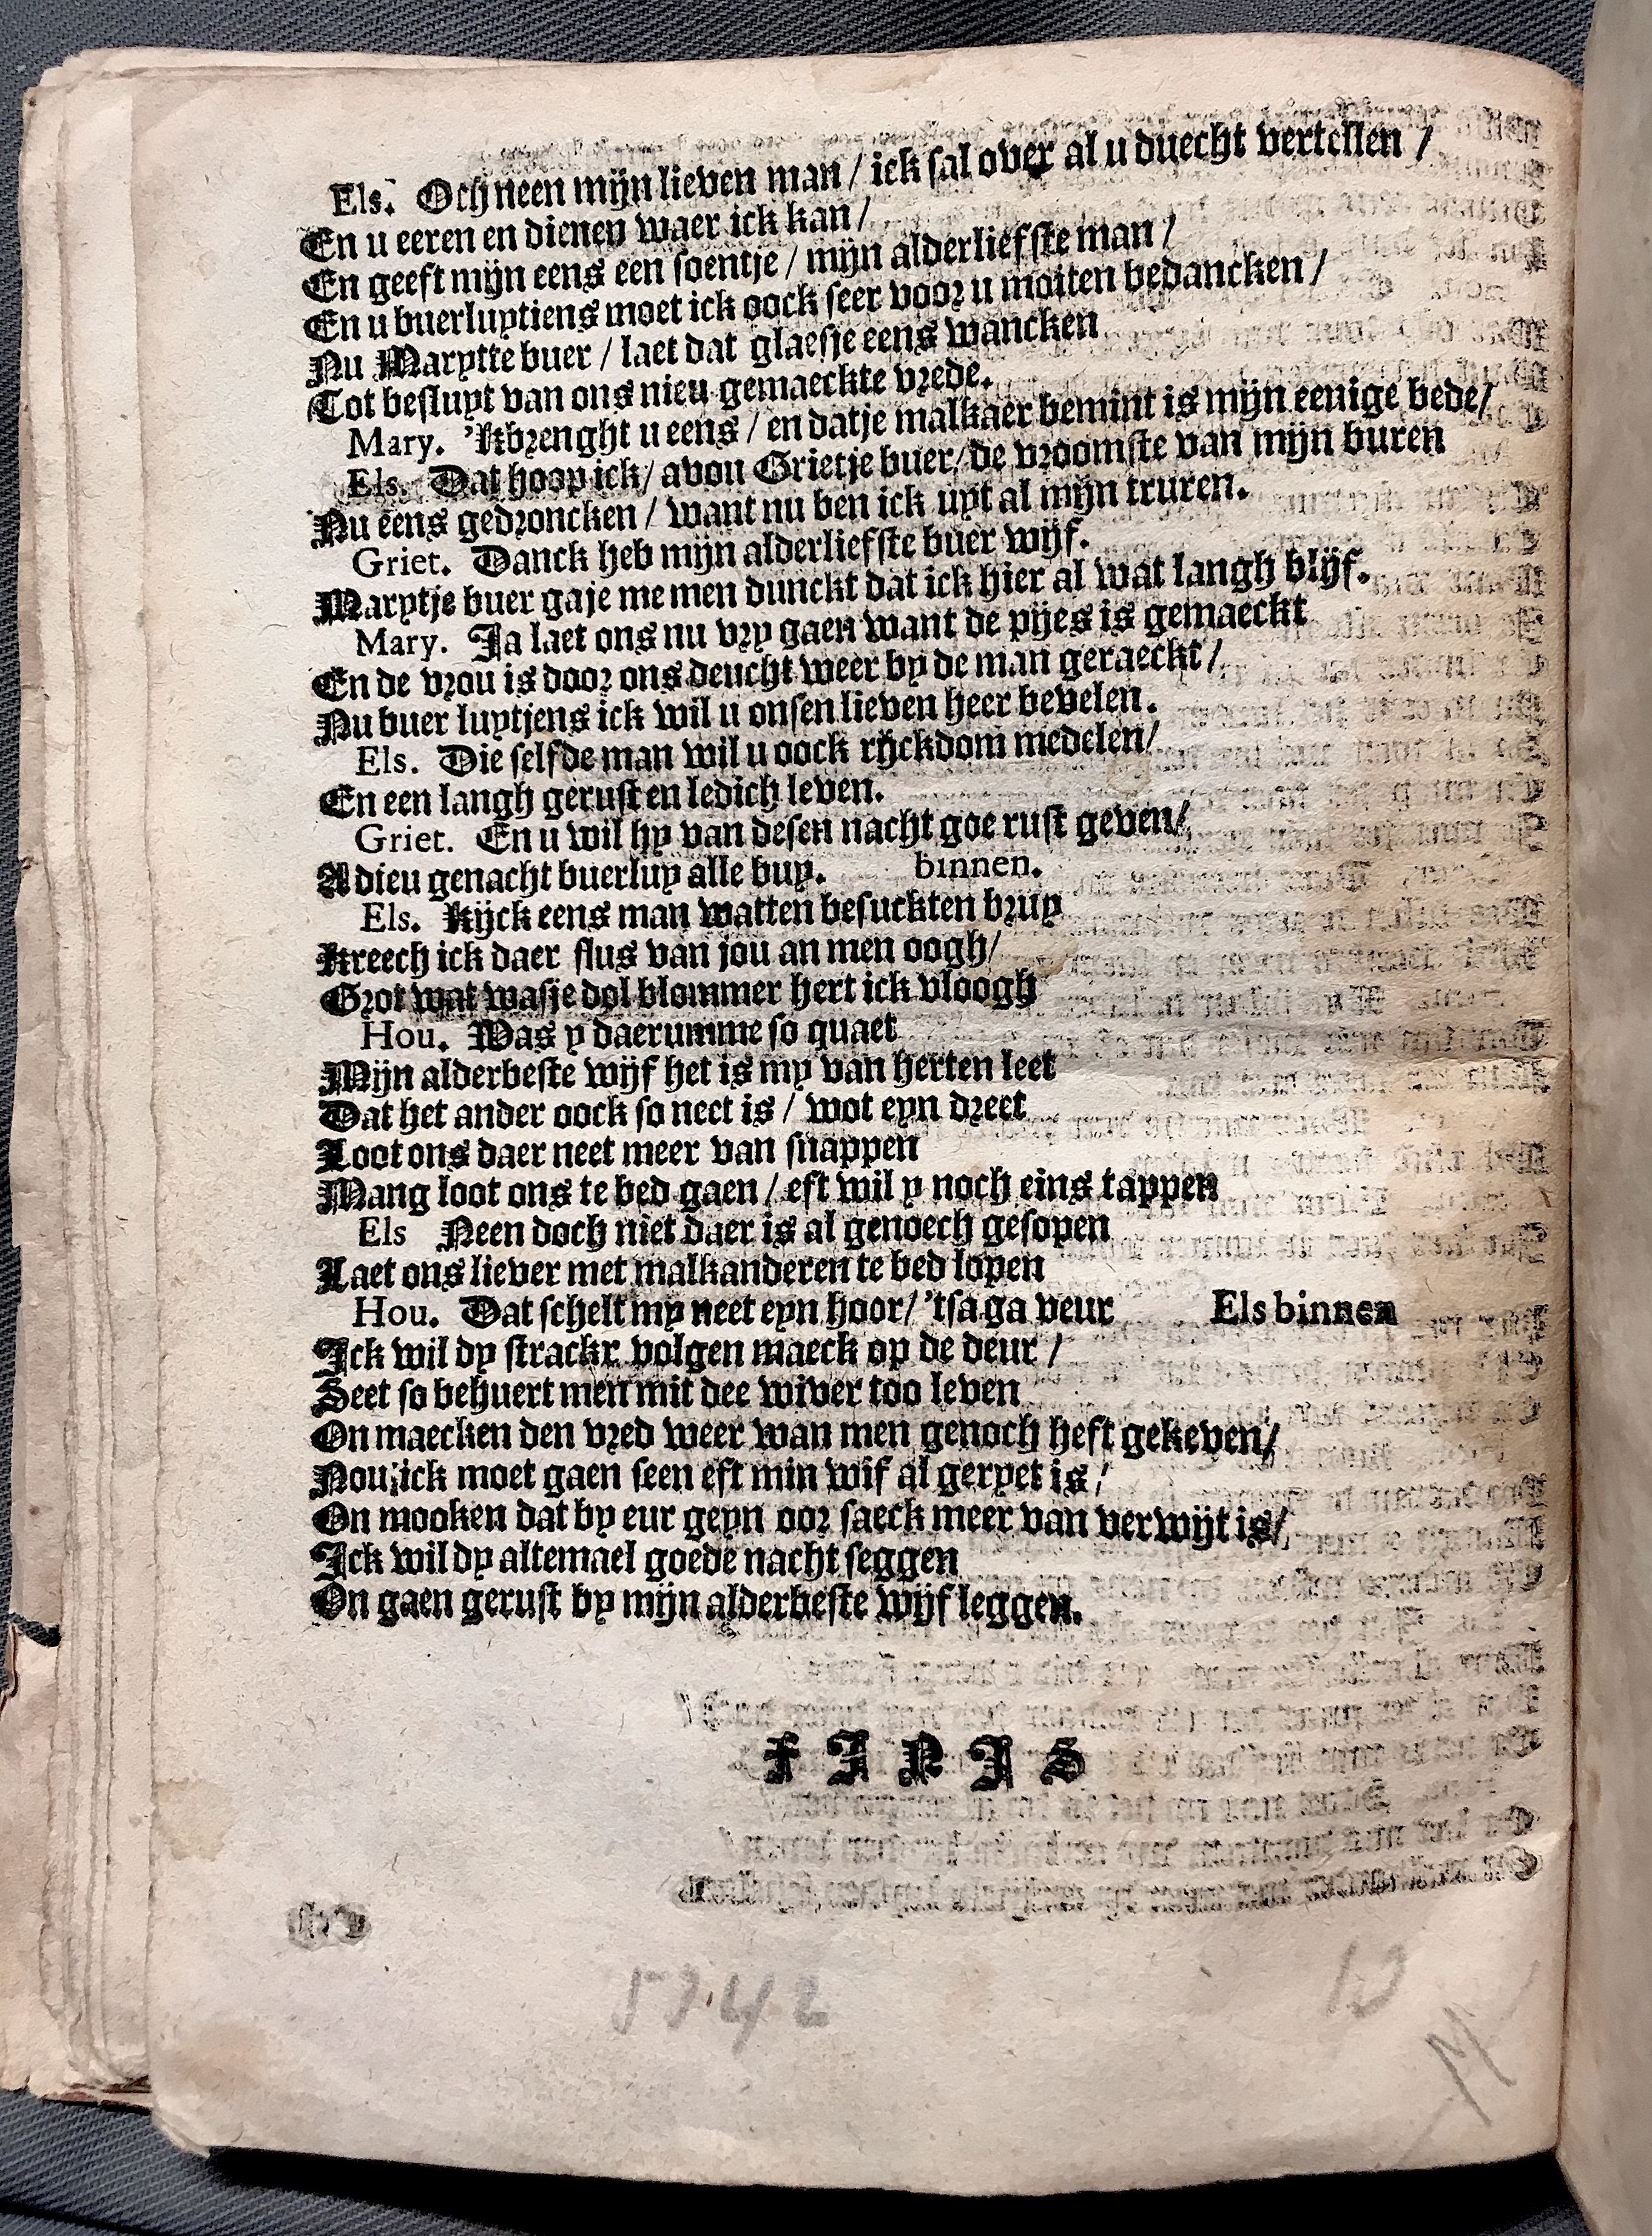 Els. Och neen mijn lieven man / ick sal over al u duecht vertellen /
En u eeren en dienen waer ick kan /
En geeft mijn eens een soentje / mijn alderliefste man /
En u buerluytiens moet ick oock seer voor u moiten bedancken /
Nu Marytte buer / laet dat glaesje eens wancken
Tot besluyt van ons nieu gemaeckte vrede.
Mary. 'Kbrenght u eens / en datje malkaer bemint is mijn eenige bede /
Els. Dat hoop ick / avou Grietje buer / de vroomste van mijn buren
Nu eens gedroncken / want nu ben ick uyt al mijn truren.
Griet. Danck heb mijn alderliefste buer wijf.
Marytje buer gaje me men dunckt dat ick hier al wat langh blijf.
Mary. Ja laet ons nu vry gaen want de pijes is gemaeckt
En de vrou is door ons deucht weer by de man geraeckt /
Nu buer luytjens ick wil u onsen lieven heer bevelen.
Els. Die selfde man wil u oock rijckdom medelen /
En een langh gerust en ledich leven.
Griet. En u wil hy van desen nacht goe rust geven /
Adieu genacht buerluy alle buy. binnen.
Els. Kijck eens man watten besuckten bruy
Kreech ick daer flus van jou an men oogh /
Grot wat wasje dol blommer hert ick vloogh
Hou. Was y daerumme so quaet
Mijn alderbeste wijf het is my van herten leet
Dat het ander oock so neet is / wot eyn dreet
Loot ons daer neet meer van snappen
Mang loot ons te bed gaen / eft wil y noch eins tappen
Els Neen doch niet daer is al genoech gesopen
Laet ons liever met malkanderen te bed lopen
Hou. Dat schelt my neet eyn hoor / 'tsa ga veur Els binnen
Ick wil dy strackx volgen maeck op de deur /
Seet so behuert men mit dee wiver too leven
On maecken den vred weer wan men genoch heft gekeven /
Nou ick moet gaen seen eft min wif al geryet is /
On mooken dat by eur geyn oor saeck meer van verwijt is /
Ick wil dy altemael goede nacht seggen
On gaen gerust by mijn alderbeste wijf leggen.
FINIS
5742
10
M